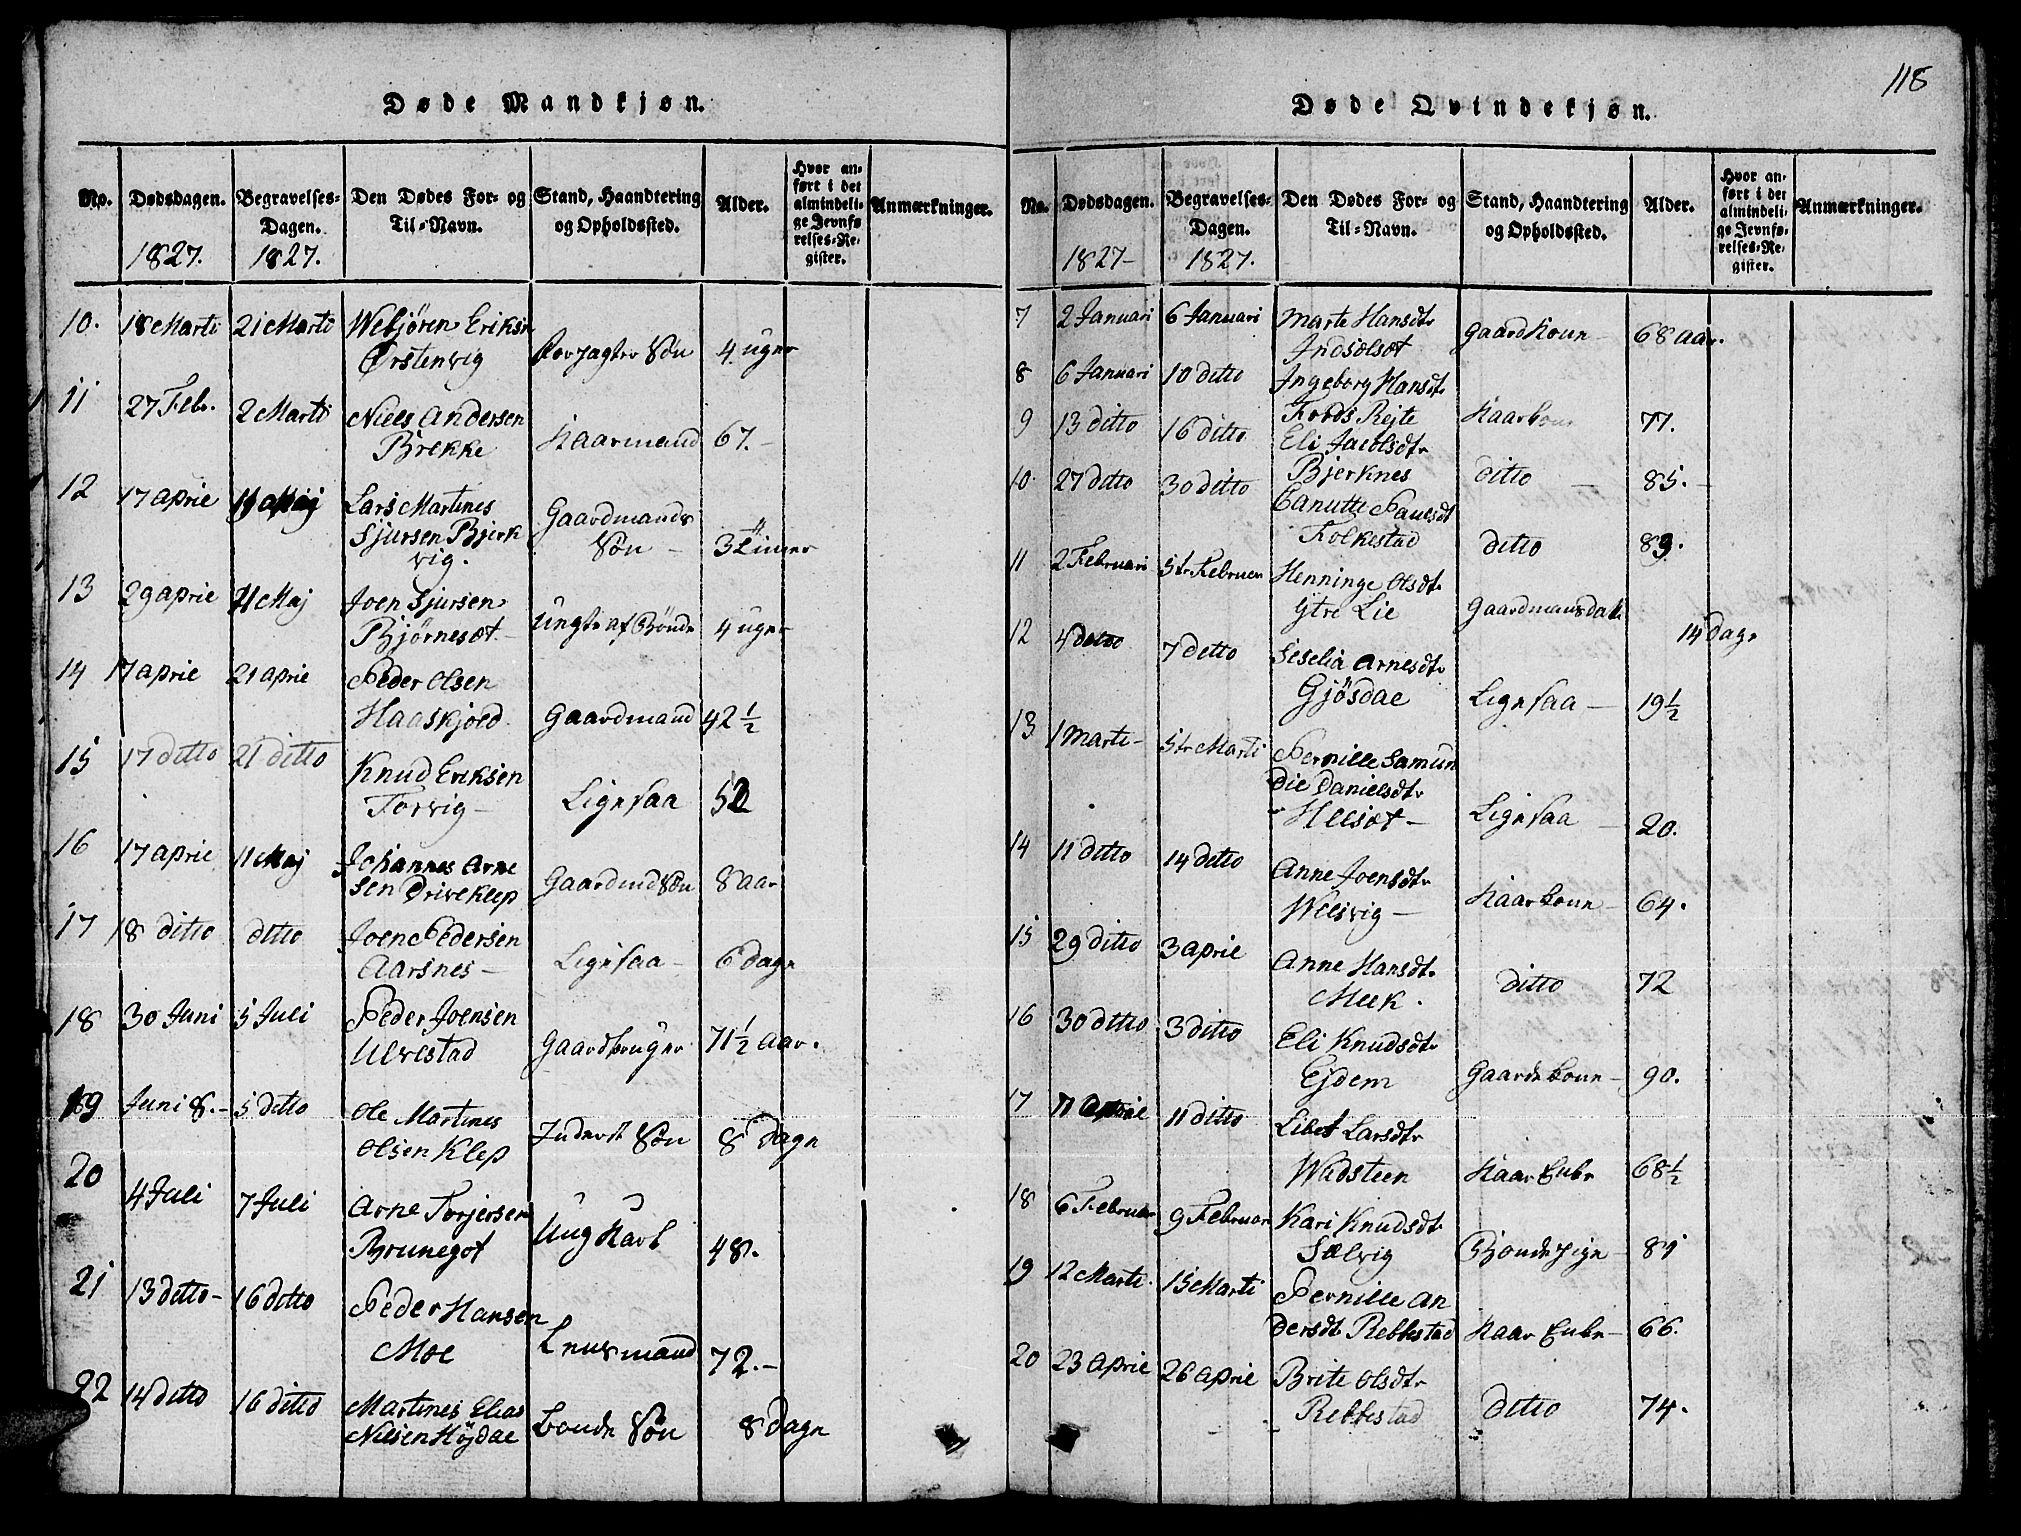 118
Døde Mandkjøn.
No. Dødsdagen. Begravelses-Dagen. Den Dødes For- og Til-Navn. Stand, Haandtering og Opholdssted. Alder. Hvor anført i det almindelige Jevnførelses-Register. Anmærkninger.
1827. 1827.
10. 18 Marti 21 Marti Webjören Eriksn
Örstenvig 4 uger
11 27 Febr. 2 Marti Niels Andersen
Brekke Kaarmand 67.-
12 17 aprie Maj Lars Martines
Sjursen Bjerk Gaardmands
vig. Sön - 3 Timer
13 29 aprie 11 Maj Joen Sjursen
Bjørnesæt - Ungte af Bönde 4 uger
14 17 aprie 21 aprie Peder Olsen
Haaskjold Gaardmand 42 1/2
15 17 ditto 21 ditto Knud Eriksen
Torvig - Ligesaa 52
16 17 aprie 11 Maj Johannes Arne
sen Driveklep Gaardmd Sön 8 aar
17 18 ditto ditto Joen Pedersen
Aarsnes - Ligesaa - 6 Dage
18 30 Juni 5 Juli Peder Joensen
Ulvestad Gaardbruger 71 1/2 aar.
19 Juni 8.- 5 ditto Ole Martines
Olsen Klep Inderst Sön 8 Dage
20 4 Juli 7 Juli Arne Torjersen
Brunegot Ung Karl 48.
21 13 ditto - 16 ditto Peder Hansen
Moe Lensmand 72.-
22 14 ditto 16 ditto Martines Elias
Nilsen Höjdae Bonde Sön 8 Dage
Døde Qvindekjøn.
No. Dødsdagen. Begravelses-Dagen. Den Dødes For- og Til-Navn. Stand, Haandtering og Opholdssted. Alder. Hvor anført i det almindelige Jevnførelses-Register. Anmærkninger.
1827- 1827.
7 2 Januari 6 Januari Marte Hansdtr
Indselsæt Gaardkoun - 68 aar.
8 6 Januari 10 ditto Ingeborg Hansdtr
Fords Rejte Kaarkoun 77.
9 13 ditto 16 ditto Eli Jacobsdtr
Bjerknes ditto - 85.-
10. 27 ditto 30 ditto Canutte Paulsdt
Folkestad ditto 89.
11 2 Februari 5te Februar Henninge Olsdtr
Ytre Lie Gaardmansdat. 14 Dage
12 4 ditto 7 ditto Seselia Arnesdtr
Gjösdae Ligesaa - 19 1/2
13 1 Marti- 5te Marti Pernille Samun
die Danielsdtr
Heesæt - Ligesaa - 20.
14 11 ditto 14 ditto Anne Joensdtr
Welsvig - Kaarkoun - 64.
15 29 ditto 3 aprie Anne Hansdtr
Meek. ditto 72
16 30 ditto 3 ditto Eli Knudsdtr
Ejdem Gaardekoun - 90.
17 11 ditto Libet Larsdtr
Wadsteen Kaar Enke 68 1/2
18 6 Februar 9 Februar Kari Knudsdt.
Sælvig 81
19 12 Marti. 15 Marti Pernille An
dersdt. Rekkestad Kaar Enke - 66.
20 23 aprie 26 aprie Brite Olsdtr
Rekkestad ditto 74.